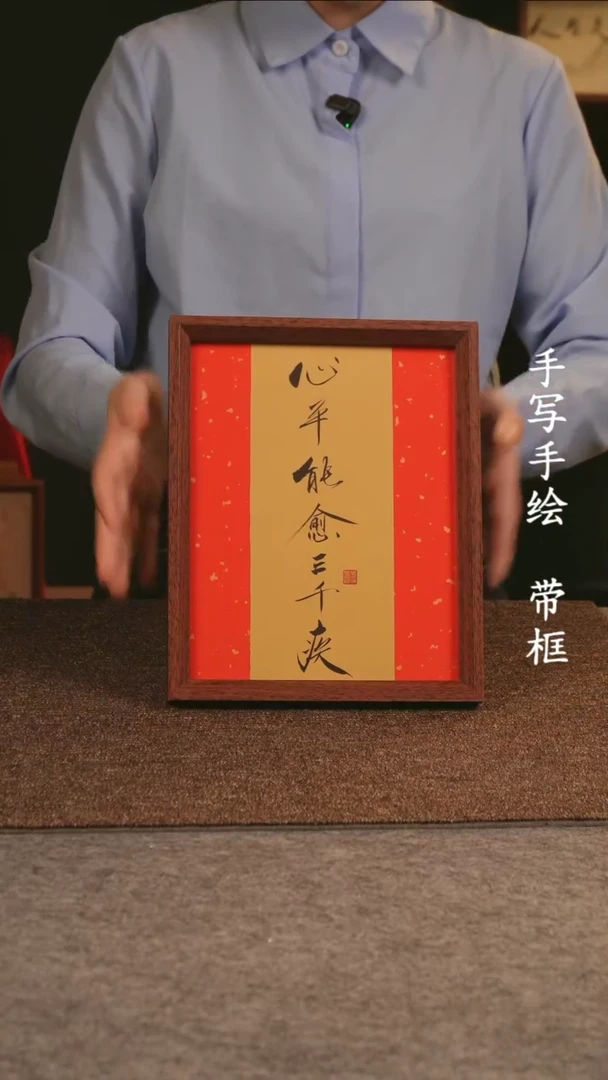 心平能愈三千疾
手写手绘 带框